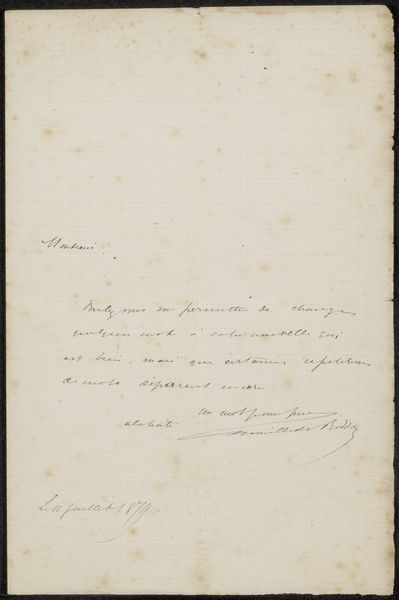 Monsieur
me permettre de changer
quelques mots à votre nouvelle qui
est bien, mais que certaines répétitions
de mots déparent encore
un mot pour
Camille de Roddaz
Le 11 Juillet 1879